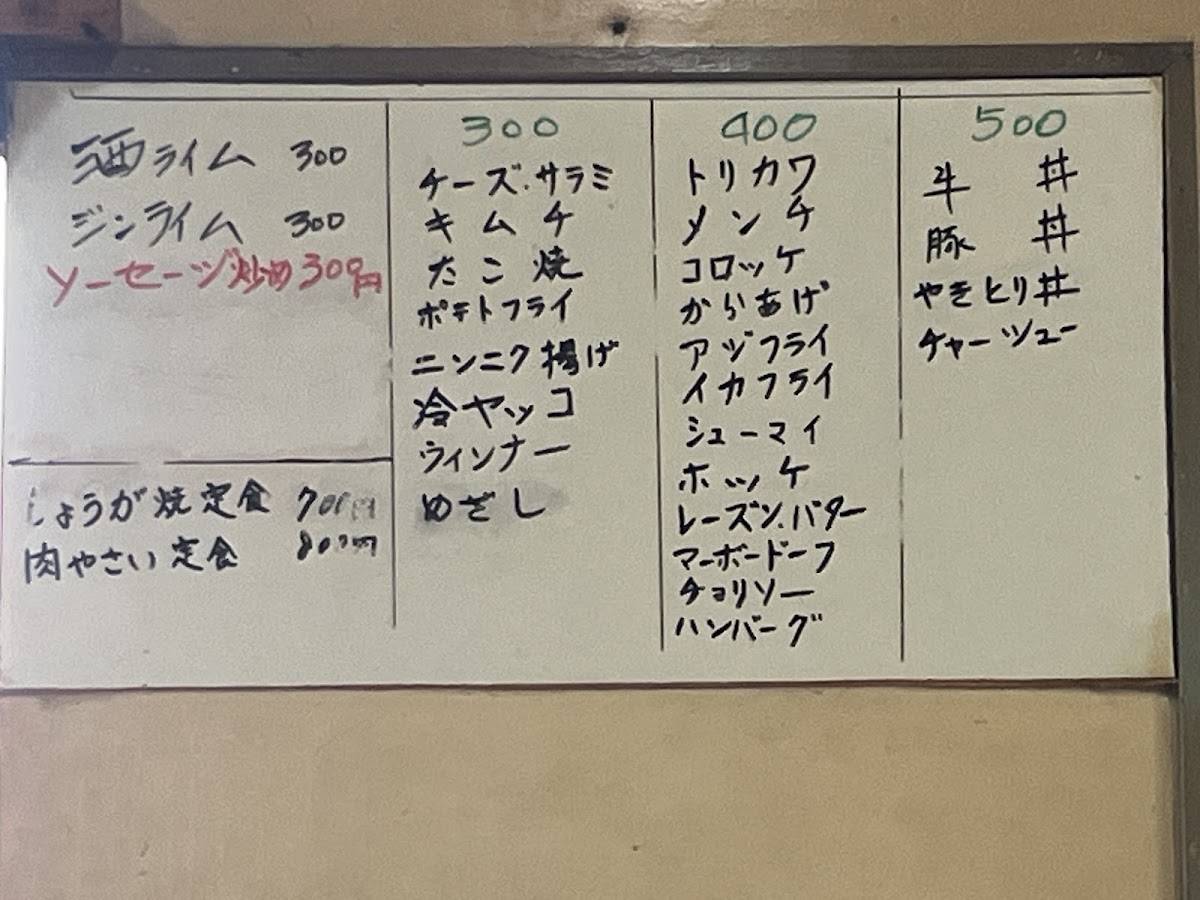 酒ライム 300
ジンライム 300
ソーセージ炒め300円
しょうが焼定食 700円
肉やさい定食 800円
300
チーズ.サラミ
キムチ
たこ焼
ポテトフライ
ニンニク揚げ
冷ヤッコ
ウィンナー
めざし
400
トリカワ
メンチ
コロッケ
からあげ
アジフライ
イカフライ
シューマイ
ホッケ
レーズン.バター
マーボードーフ
チョリソー
ハンバーグ
500
牛 丼
豚 丼
やきとり丼
チャーシュー